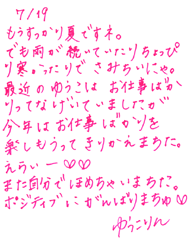 7/19
もうすっかり夏ですネ。
でも雨が続いていたりちょっぴ
り寒かったりでさみちいにゃ。
最近のゆうこは お仕事ばっか
りってなげいていましたが
今年はお仕事ばかりを
楽しもうってきりかえまちた。
えらぃー♡♡
また自分でほめちゃいまちた。
ポジティブにがんばりまちゅ♡
ゆうこりん